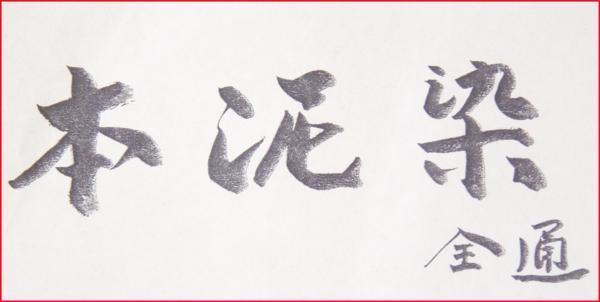 本泥染
全通